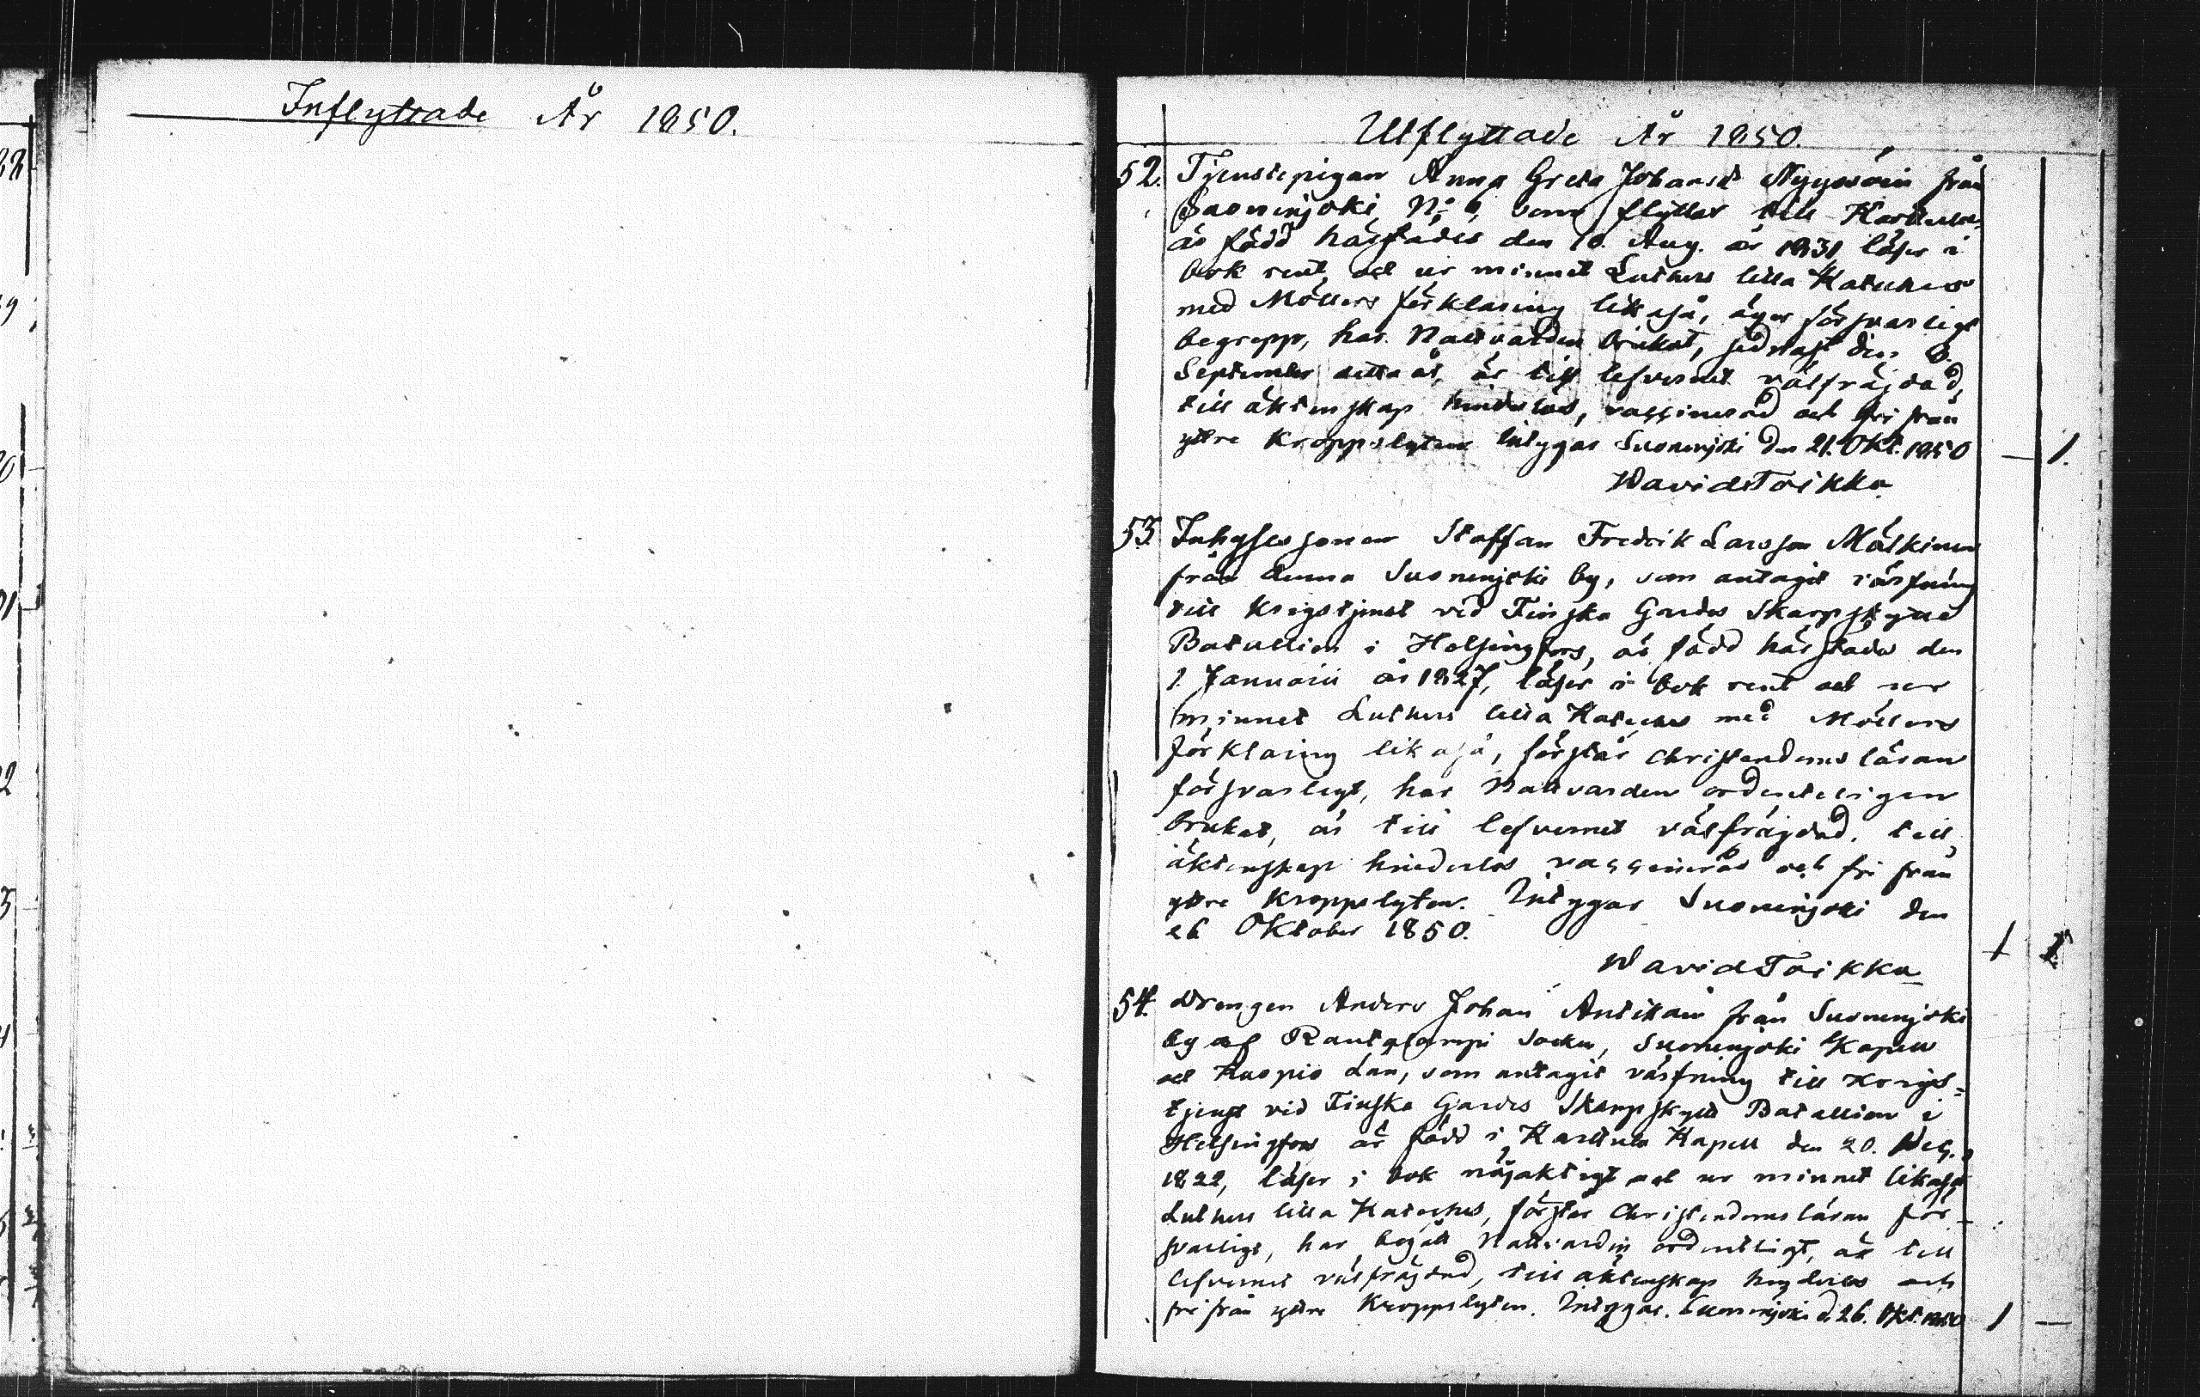 Inflyttade År 1850.
Utflyttade År 1850.
52. Tjenstepigan Anna Greta Johansdt Nyyssöin från
Suonenjoki N:o 6, som flyttar till Karttula
är född härstädes den 10. Aug. år 1831, läser i
bok rent och ur minnet Luthers lilla Kateches
med Möllers förklaring likaså, äger försvarligt
begrepp, har Nattvarden brukat, sednast den 8.
September detta år, är till lefvernet välfräjdad,
till äktenskap hinderlös, vaccinerad och fri från
yttre Kroppslyten. Intygar Suonenjoki den 21. Okt. 1850
— 1.
Wavid Toikka
53. Inhysessonen Staffan Fredrik Larsson Mälkinen
från denna Suonenjoki by, som antagit värfning
till Krigstjenst vid Finska Gardes Skarpskytte
Batallion i Helsingfors, är född härstädes den
1. Januarii år 1827, läser i bok rent och ur
minnet Luthers lilla Kateches med Möllers
förklaring likaså, förstår Christendomsläran
försvarligt, har Nattvarden ordenteligen
brukat, är till lefvernet välfräjdad, till
äktenskap hinderlös vaccinerad och fri från
yttre Kroppslyten. Intygar Suonenjoki den
26 Oktober 1850.
Wavid Toikka
1 1
54. Drengen Anders Johan Antikain från Suonenjoki
by af Rautalampi Socken, Suonenjoki Kapell
och Kuopio Län, som antagit värfning till Krigs=
tjenst vid Finska Gardes Skarpskytte Batallion i
Helsingfors är född i Karttula Kapell den 20.
1822, läser i bok nöjaktigt och ur minnet likaså
Luthers lilla Kateches, förstår Christendomsläran för-
svarligt, har begått Nattvarden ordentligt, är till
lefvernet välfräjdad, till äktenskap hinderlös och
fri från yttre Kroppslyten. Intygar. Suonenjoki d. 26. Okt. 1850
1 —